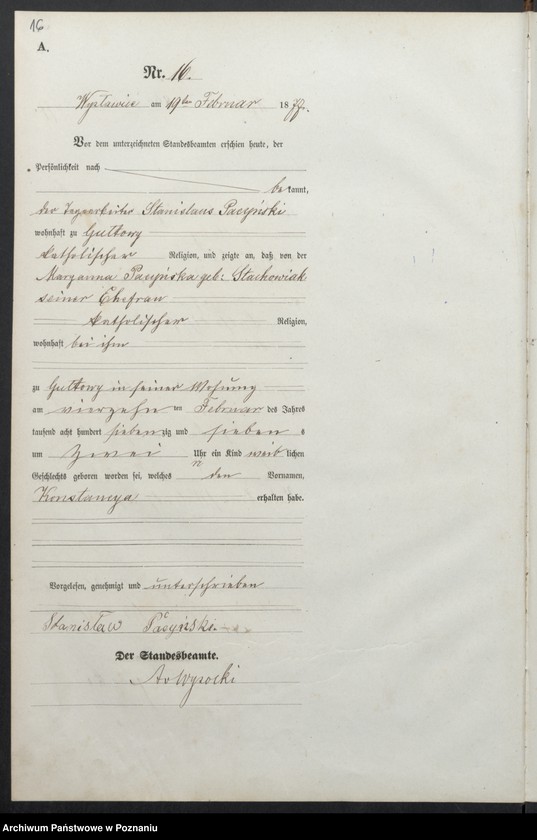 16
A.
Nr. 16.
am 19ten Februar 1877.
Vor dem unterzeichneten Standesbeamten erschien heute, der
Persönlichkeit nach
bekannt,
der Tagearbeiter Stanislaus Pacyński
wohnhaft zu Gultowy
katholischer Religion, und zeigte an, daß von der
Maryanna Pacyńska geb: Stachowiak
seiner Ehefrau
katholischer Religion,
wohnhaft bei ihm
zu Gultowy in seiner Wohnung
am vierzehn ten Februar des Jahres
tausend acht hundert siebenzig und sieben s
um zwei Uhr ein Kind weiblichen
Geschlechts geboren worden sei, welches den Vornamen,
Konstancya erhalten habe.
Vorgelesen, genehmigt und unterschrieben
Stanisław Pacyński.
Der Standesbeamte.
Wysocki
Archiwum Państwowe w Poznaniu